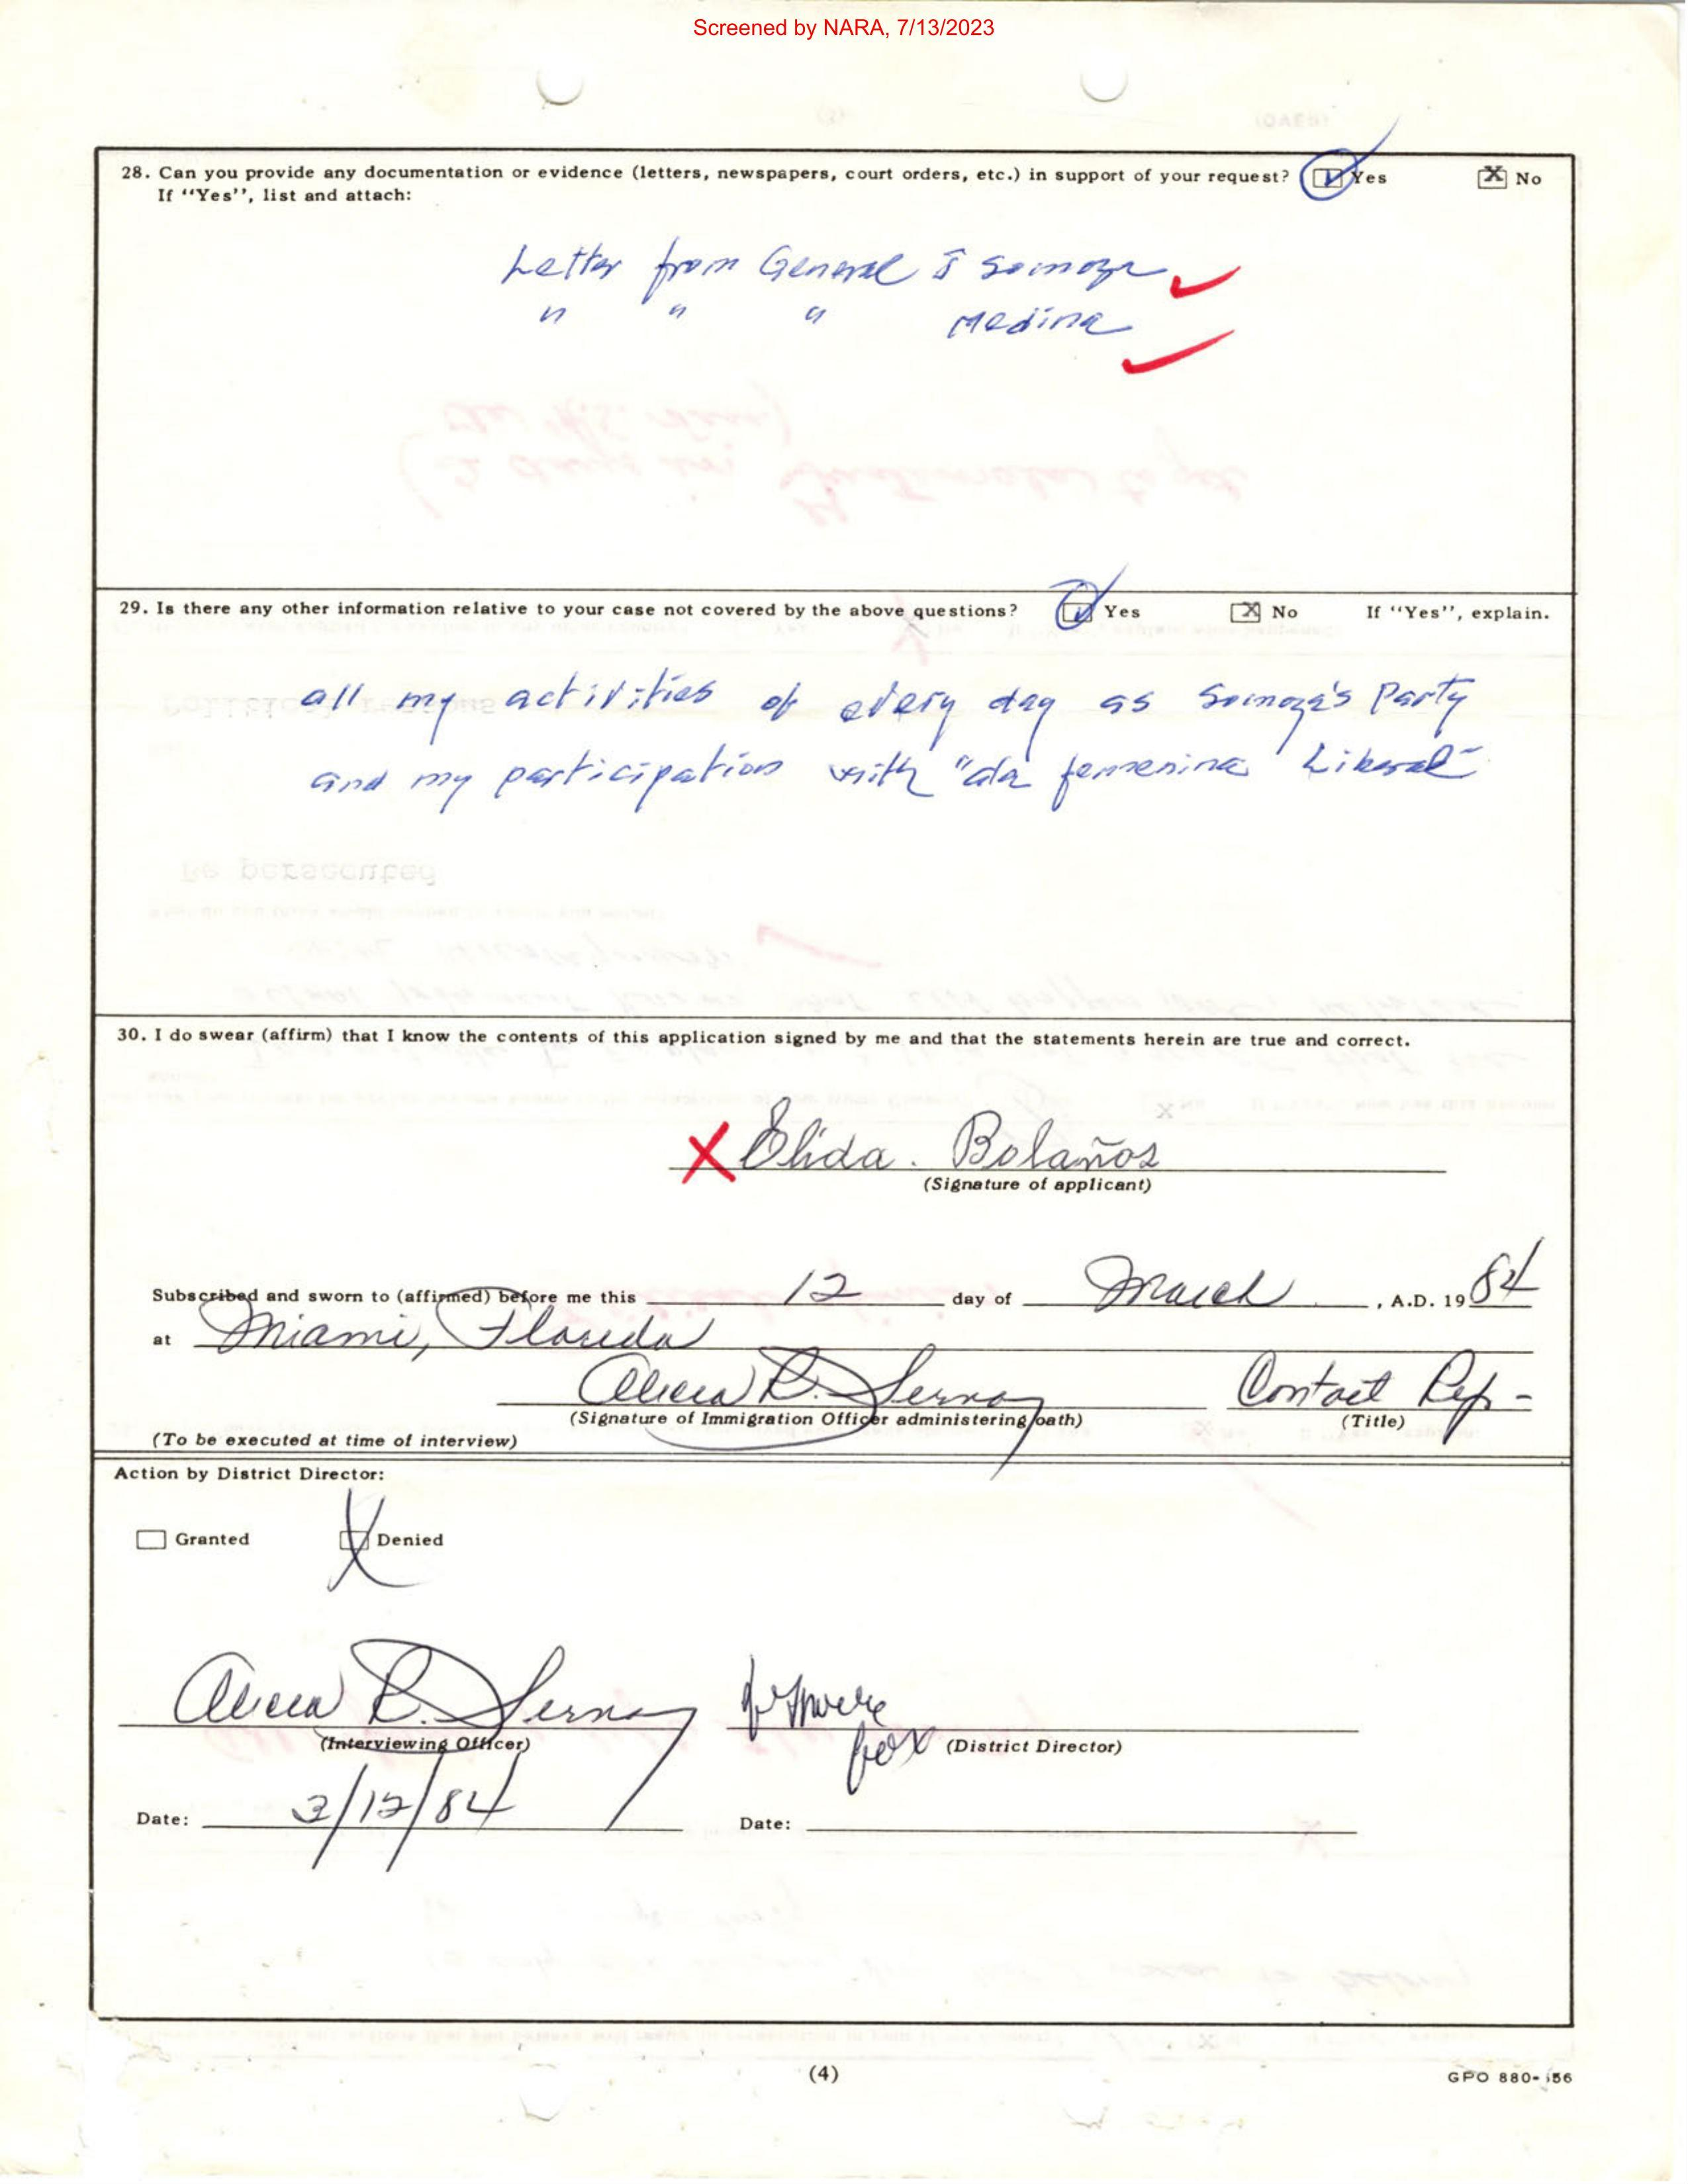 Screened by NARA, 7/13/2023
28. Can you provide any documentation or evidence (letters, newspapers, court orders, etc.) in support of your request? Yes X No
If "Yes", list and attach:
Letter from General Somoza
" " " Medina
29. Is there any other information relative to your case not covered by the above questions? Yes X No If "Yes", explain.
all my activities of every day as Somoza's Party
and my participation with "ala femenina Liberal"
Be persecuted
30. I do swear (affirm) that I know the contents of this application signed by me and that the statements herein are true and correct.
X Elida. Bolaños
(Signature of applicant)
Subscribed and sworn to (affirmed) before me this 12 day of March, A.D. 1984
at Miami, Florida
Alicia R. Serna Contact Rep-
(Signature of Immigration Officer administering oath) (Title)
(To be executed at time of interview)
Action by District Director:
Granted X Denied
Alicia R. Serna
(Interviewing Officer) (District Director)
Date: 3/12/84 Date:
(4)
GPO 880-156